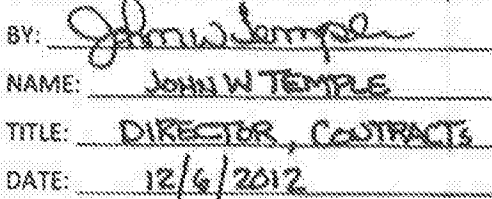 BY: John W Temple
NAME: JOHN W TEMPLE
TITLE: DIRECTOR, CONTRACTS
DATE: 12/6/2012